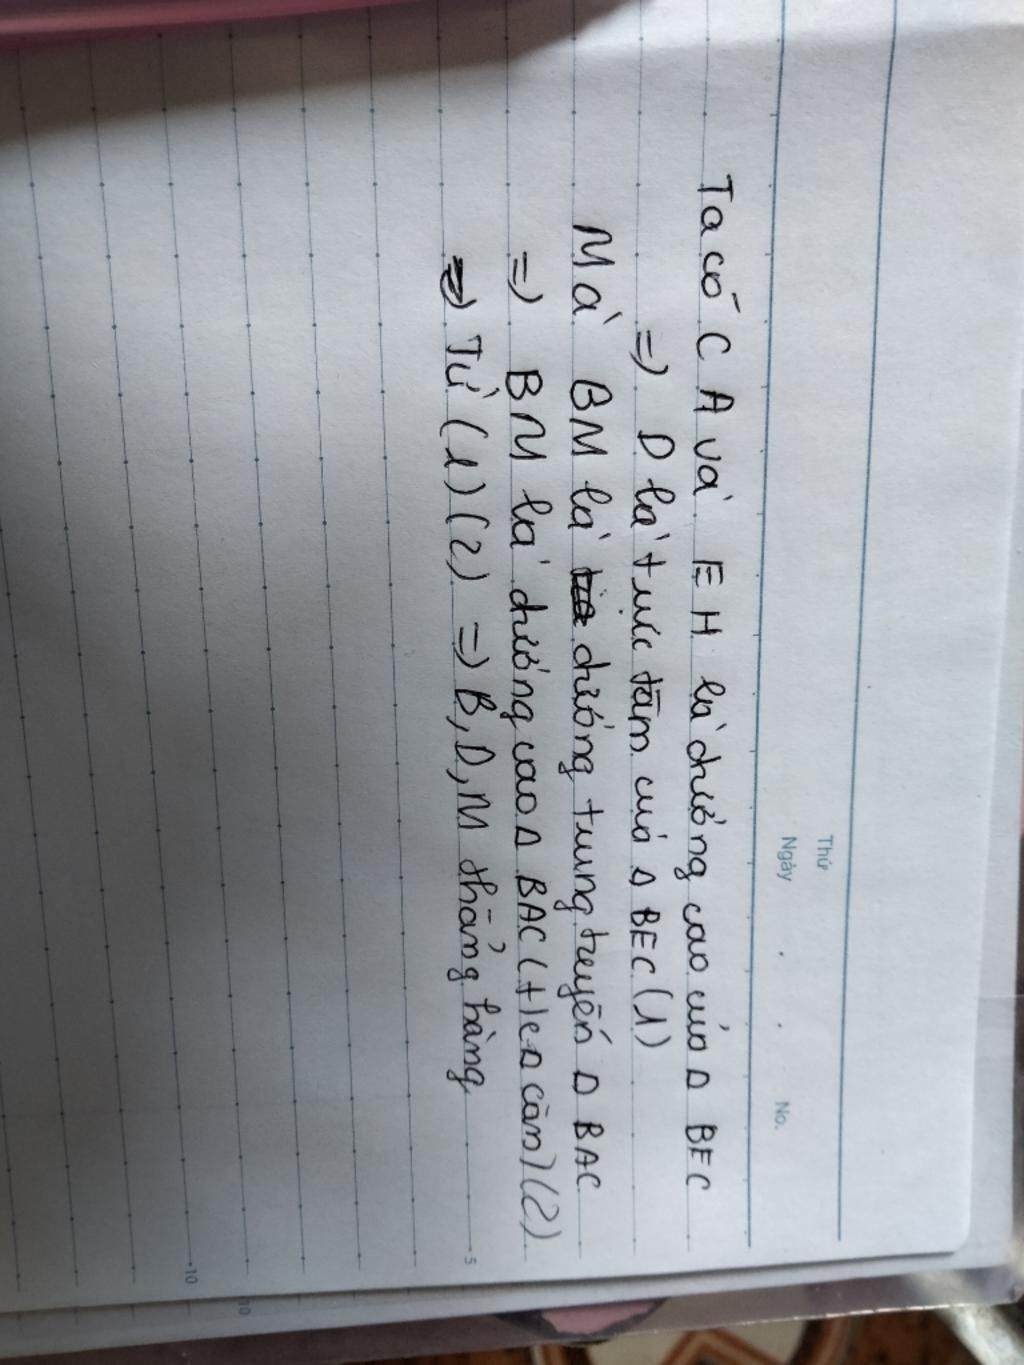 Thứ
Ngày
No.
Ta có CA và EH là đường cao của Δ BEC
=> D là trực tâm của Δ BEC (1)
Mà BM là đường trung tuyến Δ BAC
=> BM là đường cao Δ BAC (t/c Δ cân) (2)
=> Từ (1) (2) => B, D, M thẳng hàng
5
10
10